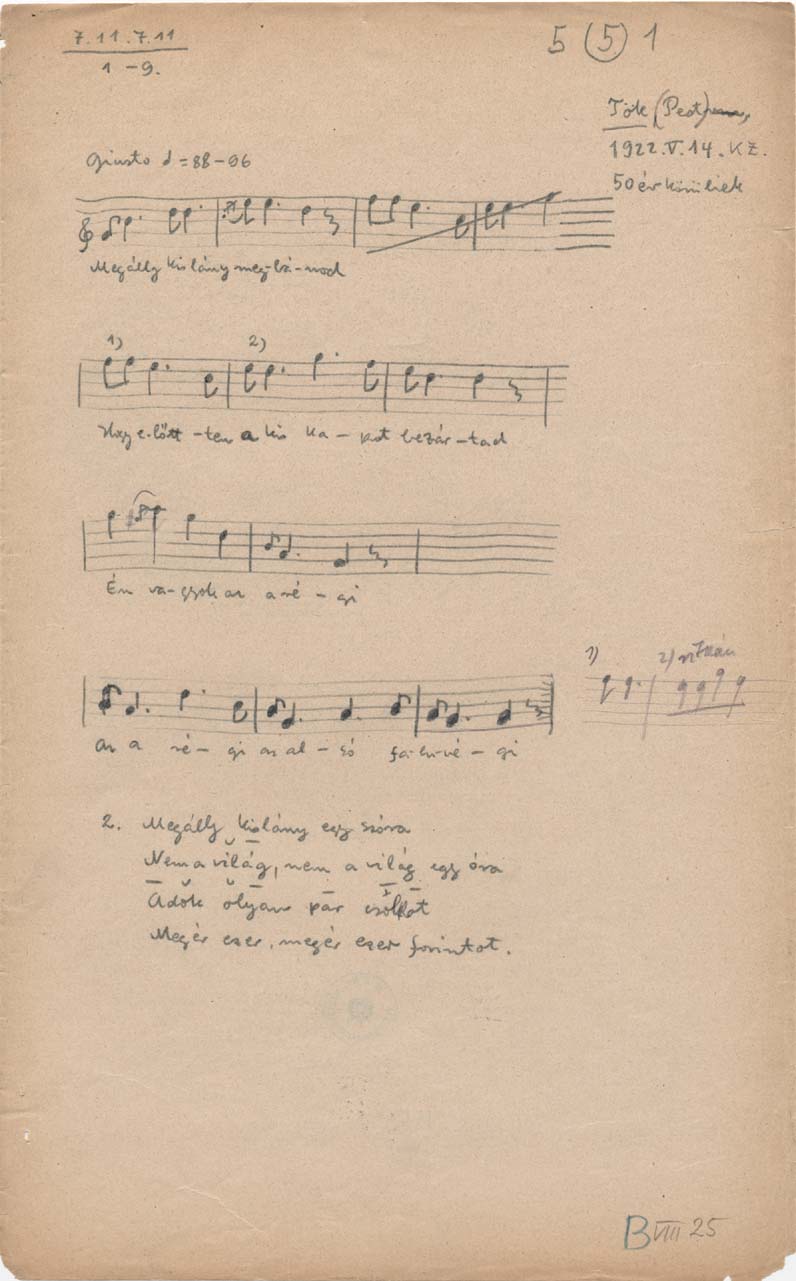 7.11.7.11
1-9.
5 (5) 1
Tök (Pest)
1922.V.14. KZ.
50 év körüliek
Giusto = 88-96
Megállj kislány meg-bá-nod
1) 2)
Hogy e-lőtt-tem a kis ka-put bezár-tad
Én va-gyok az a ré-gi
1) 2)
Az a ré-gi az al-só fa-lu-vé-gi
2. Megállj kislány egy szóra
Nem a világ, nem a világ egy óra
Adok olyan pár csókot
Megér ezer, megér ezer forintot.
B VIII 25